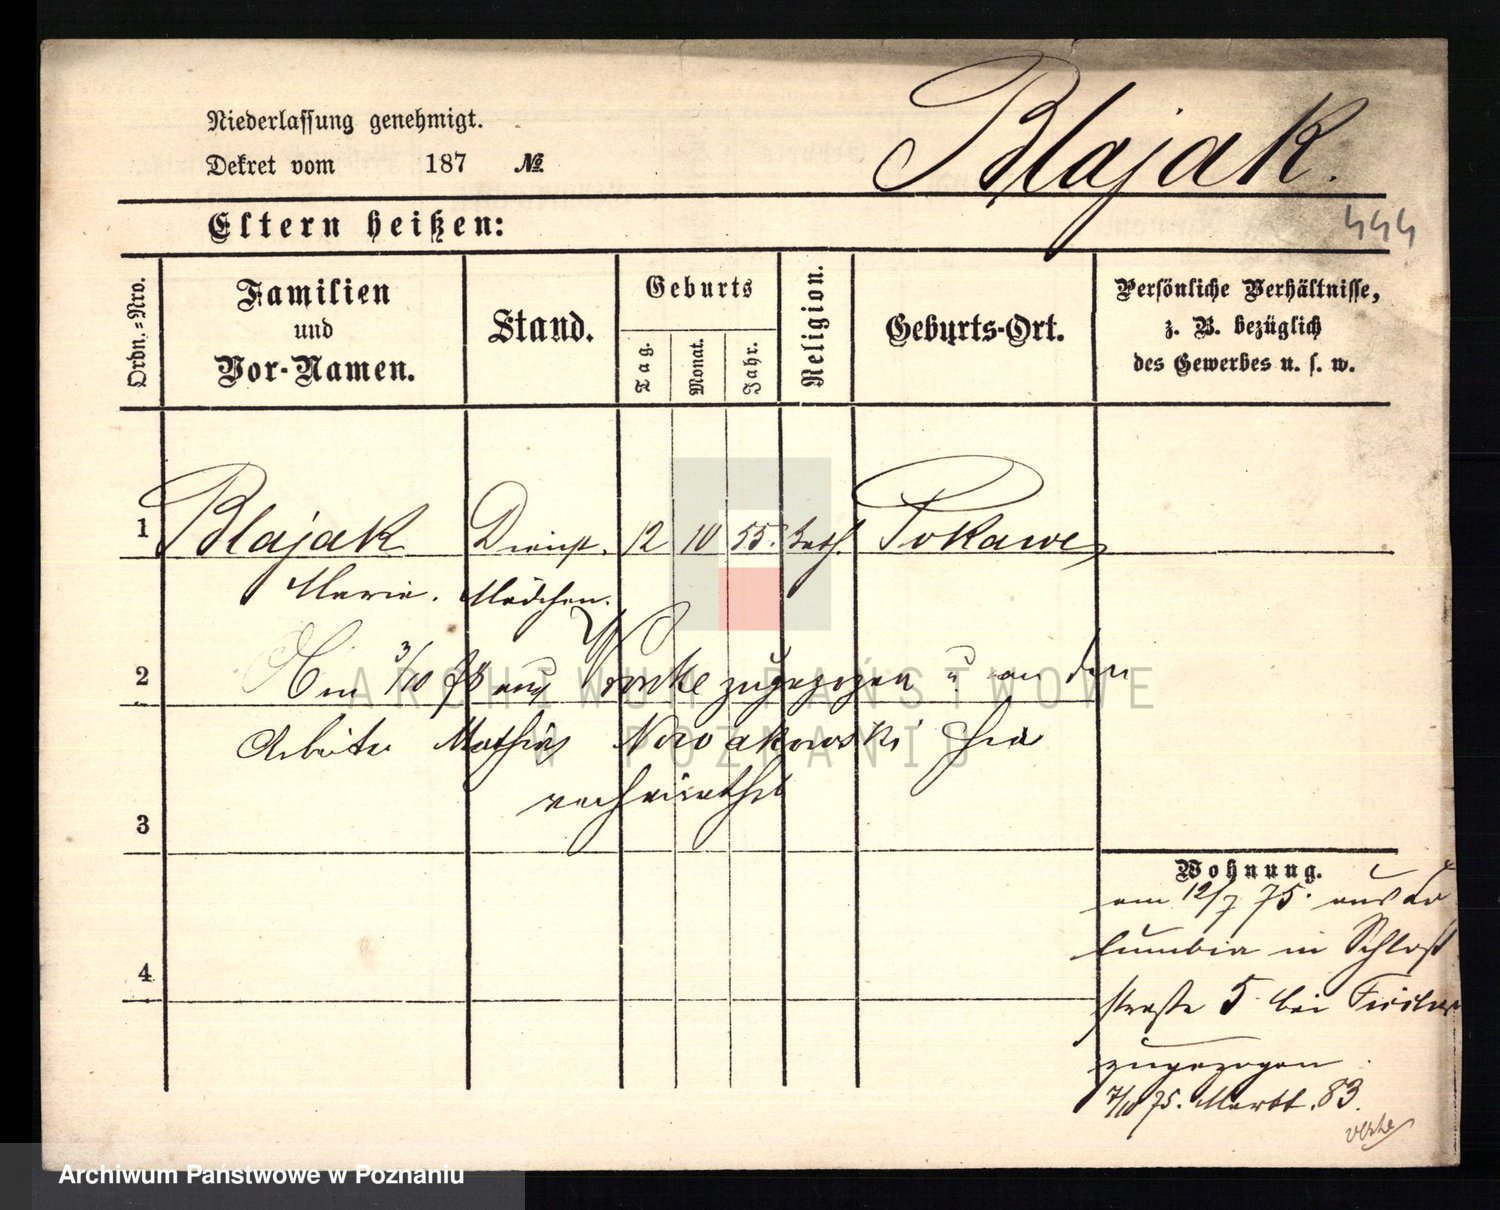 Niederlassung genehmigt.
Dekret vom 187 №
Blajak.
Eltern heißen:
444
Ordn.=Nro.
Familien
und
Vor-Namen.
Stand.
Geburts
Tag.
Monat.
Jahr.
Religion.
Geburts-Ort.
Persönliche Verhältnisse,
z. B. bezüglich
des Gewerbes u. s. w.
1 Blajak Dienst. 12 10 55. kath. Pokawe
Marie. Mädchen.
2 3/10 78 aus Wronke zugezogen u. an den
Arbeiter Mathias Nowakowski hier
verheirathet
3
4
Wohnung.
am 12/7 75. aus Co
lumbia in Schloß
straße 5 bei
zugezogen
7/10 75. Markt. 83.
ARCHIWUM PAŃSTWOWE
W POZNANIU
Archiwum Państwowe w Poznaniu